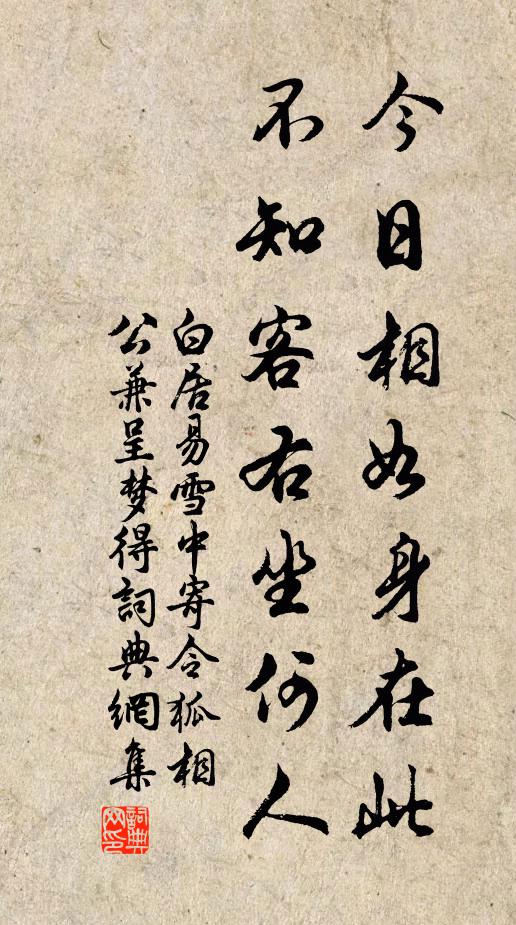 今日相如身在此
不知客右坐何人
白居易雪中寄令狐相
公兼呈梦得詞典網集
詞典
网印